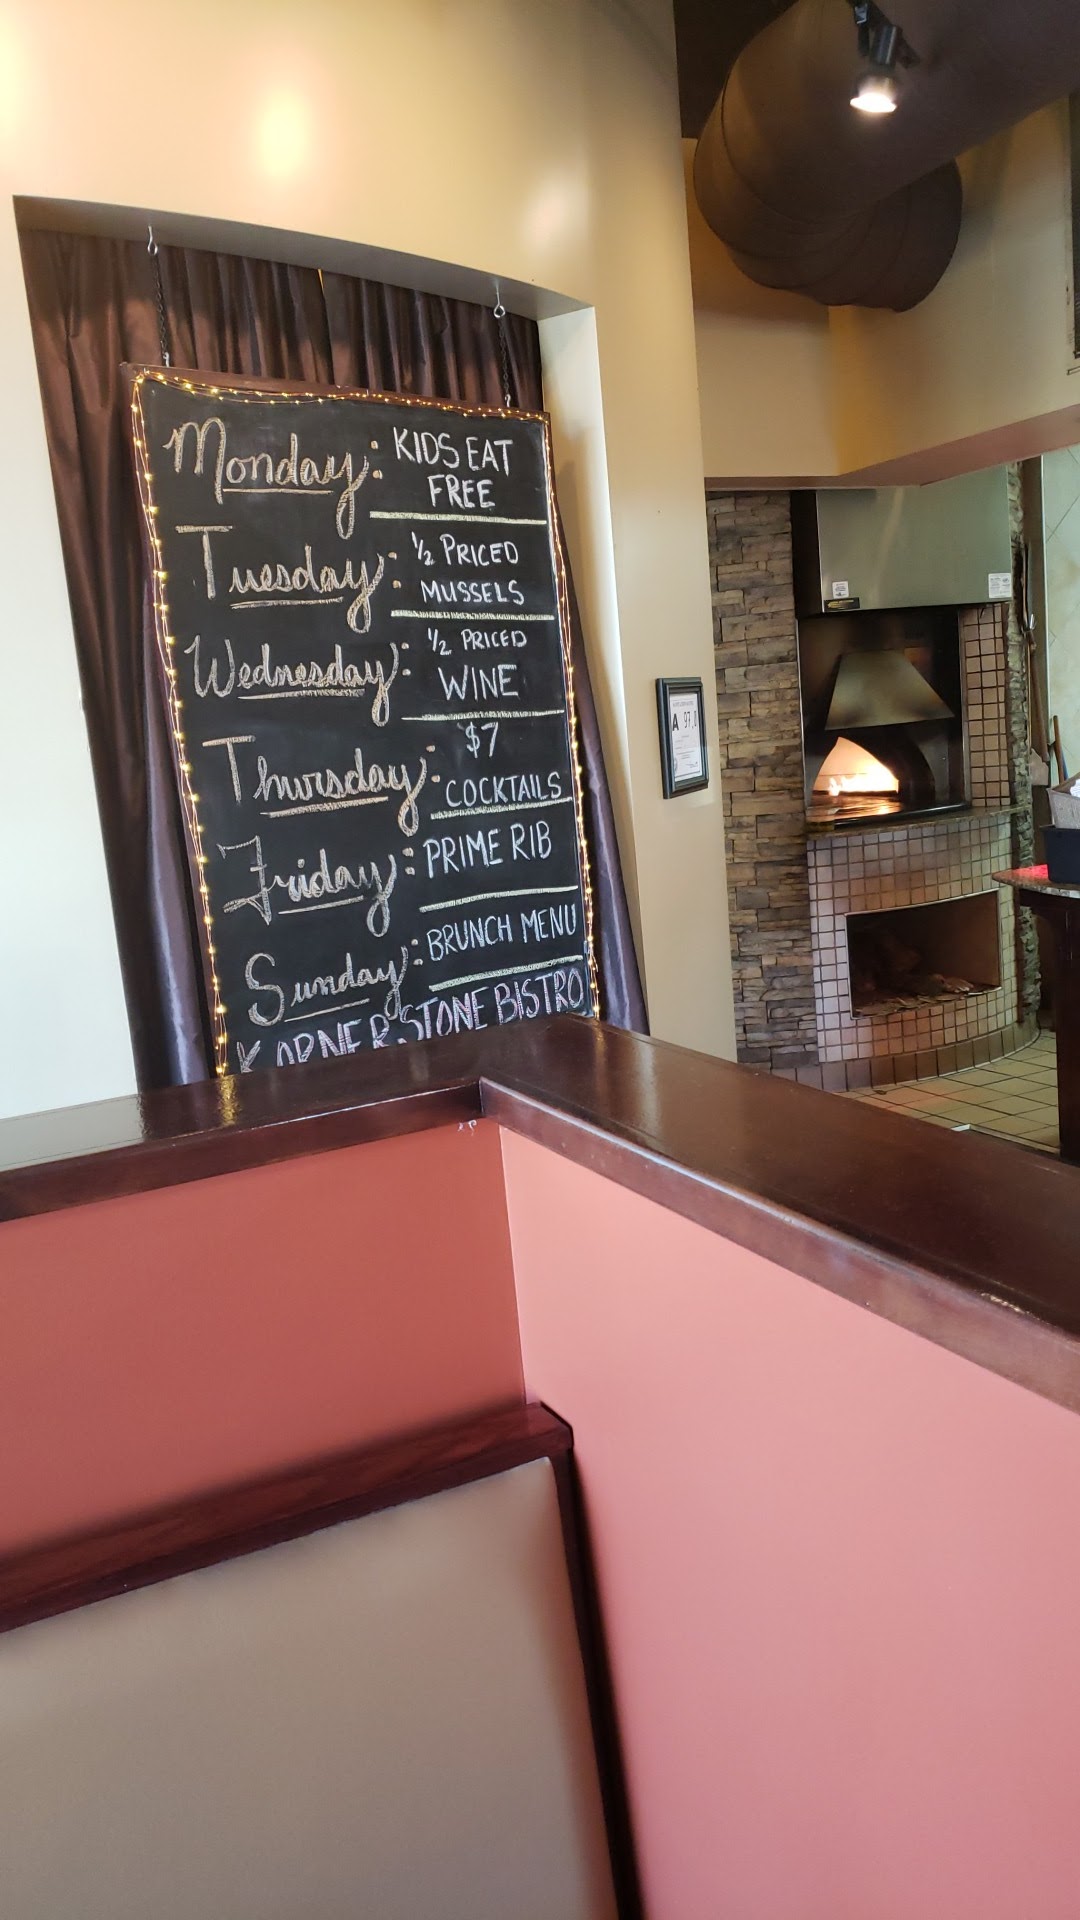 Monday: KIDS EAT
FREE
Tuesday: 1/2 PRICED
MUSSELS
Wednesday: 1/2 PRICED
WINE
Thursday: $7
COCKTAILS
Friday: PRIME RIB
Sunday: BRUNCH MENU
KORNERSTONE BISTRO
A 97.